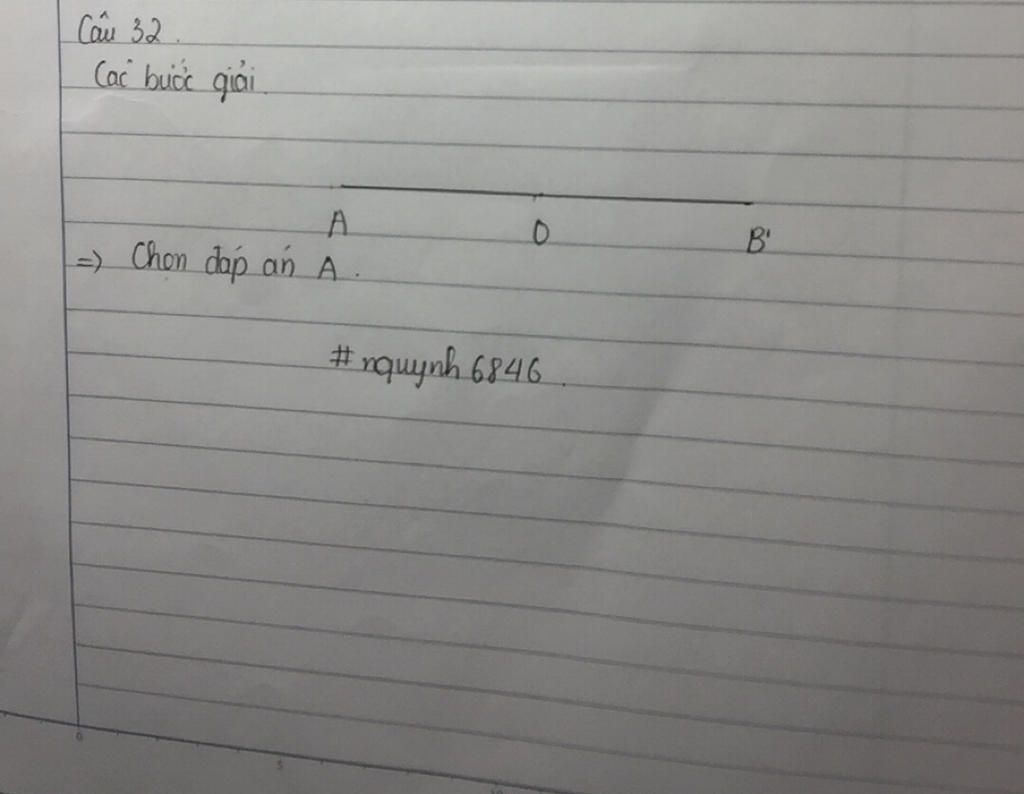 Câu 32.
Các bước giải.
A O B'
=> Chọn đáp án A.
#nquynh6846.
0 5 10